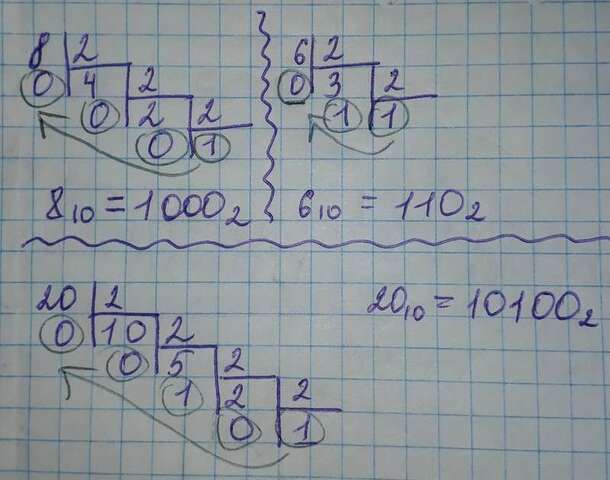 8 2
0 4 2
0 2 2
0 1
8₁₀ = 1000₂
6 2
0 3 2
1 1
6₁₀ = 110₂
20 2
0 10 2
0 5 2
1 2 2
0 1
20₁₀ = 10100₂